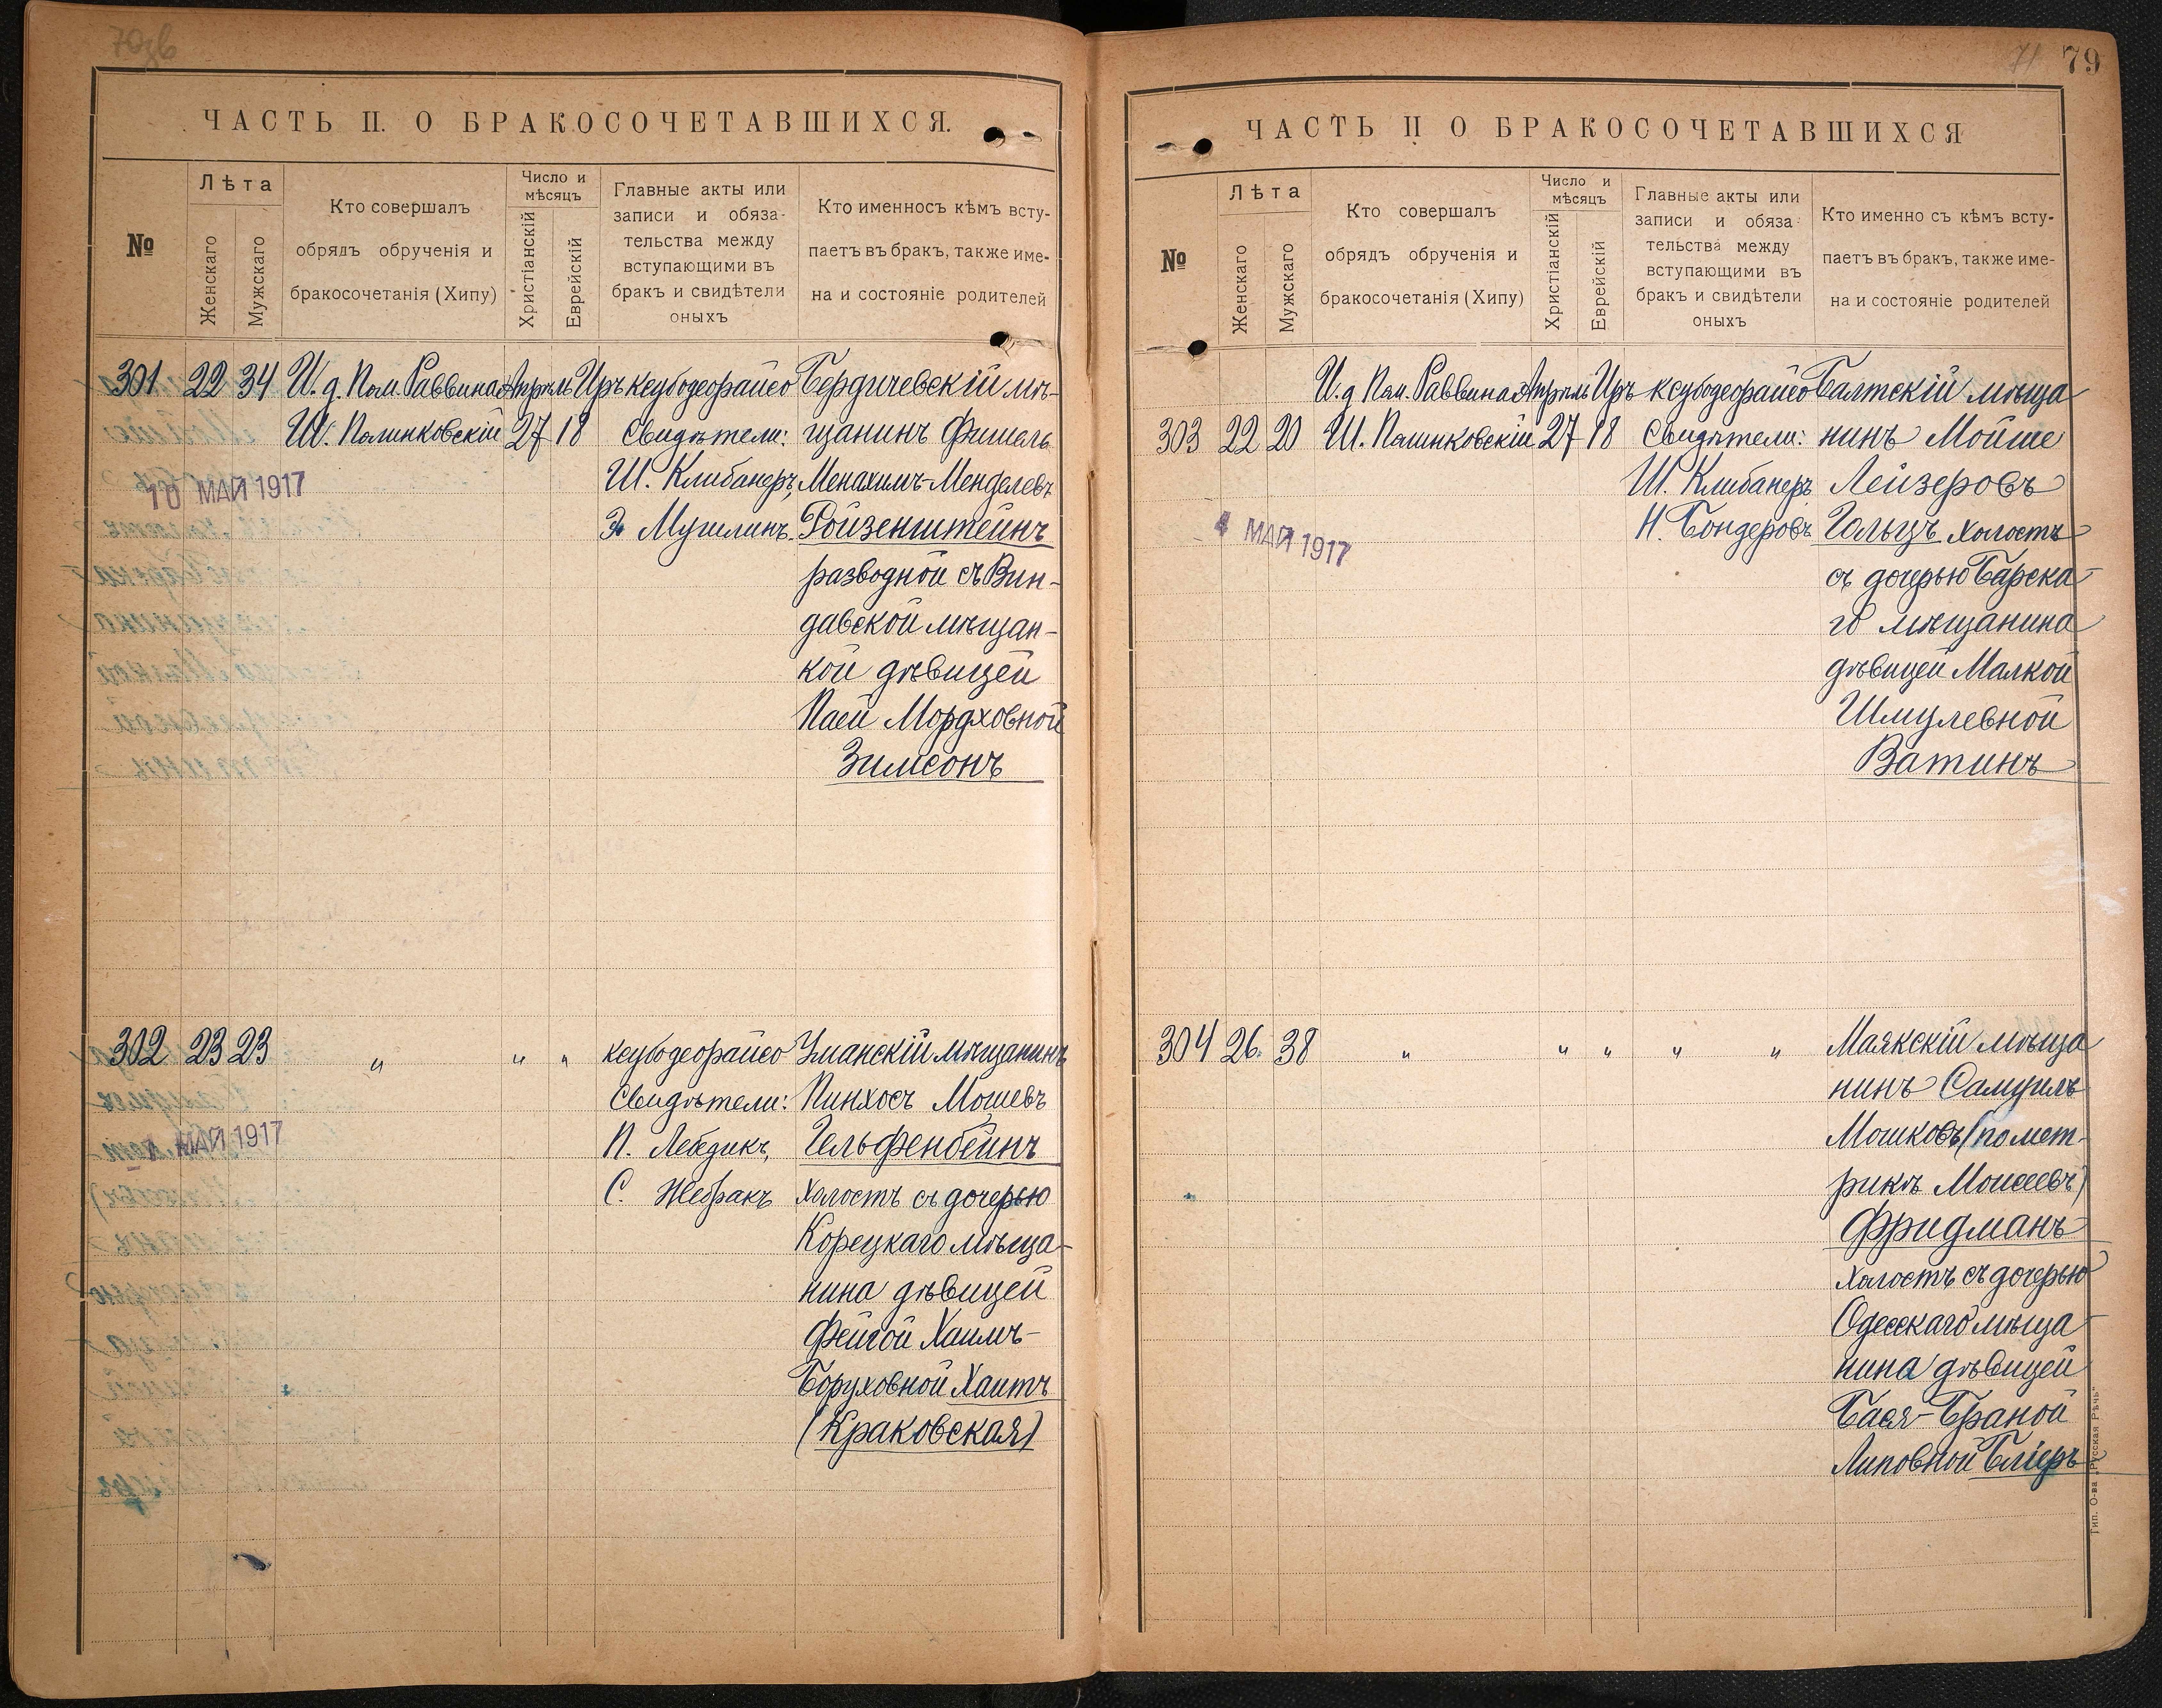 70зв
ЧАСТЬ II. О БРАКОСОЧЕТАВШИХСЯ.
№
Лѣта
Женскаго
Мужскаго
Кто совершалъ
обрядъ обрученія и
бракосочетанія (Хипу)
Число и
мѣсяцъ
Христіанскій
Еврейскій
Главные акты или
записи и обяза-
тельства между
вступающими въ
бракъ и свидѣтели
оныхъ
Кто именносъ кѣмъ всту-
паетъ въ бракъ, также име-
на и состояніе родителей
301 22 34 И. д. Пом. Раввина Апрѣль Иръ ксубодеорайсо Бердичевскій мѣ-
Ш. Полинковскій 27 18 Свидѣтели: щанинъ Фишель
Ш. Клибанеръ, Менахимъ-Менделевъ
10 МАЙ 1917
Э. Мушлинъ. Ройзенштейнъ
разводной съ Вин-
давской мѣщан-
кой дѣвицей
Паей Мордховной
Зимсонъ
302 23 23 " " " ксубодеорайсо Уманскій мѣщанинъ
Свидѣтели: Пинхосъ Мошевъ
МАЙ 1917
П. Лебедикъ, Гельфенбейнъ
С. Жебракъ Холостъ съ дочерью
Корецкаго мѣща-
нина дѣвицей
Фейгой Хаимъ-
Боруховной Хаитъ
(Краковская)
71 79
ЧАСТЬ II О БРАКОСОЧЕТАВШИХСЯ
№
Лѣта
Женскаго
Мужскаго
Кто совершалъ
обрядъ обрученія и
бракосочетанія (Хипу)
Число и
мѣсяцъ
Христіанскій
Еврейскій
Главные акты или
записи и обяза
тельства между
вступающими въ
бракъ и свидѣтели
оныхъ
Кто именно съ кѣмъ всту-
паетъ въ бракъ, также име-
на и состояніе родителей
И. д Пом. Раввина Апрѣль Иръ ксубодеорайсо Балтскій мѣща
303 22 20 Ш. Полинковскій 27 18 Свидѣтели: нинъ Мойше
Ш. Клибанеръ Лейзеровъ
4 МАЙ 1917
Н. Бондеровъ Гольцъ холостъ
съ дочерью Барска-
го мѣщанина
дѣвицей Малкой
Шмулевной
Ватинъ
304 26. 38 " " " " " Маякскій мѣща
нинъ Самуилъ
Мошковъ (по мет-
рикѣ Моисеевъ)
Фридманъ
холостъ съ дочерью
Одесскаго мѣща-
нина дѣвицей
Бася-Браной
Липовной Бліеръ
Тип. О-ва „Русская Рѣчь"